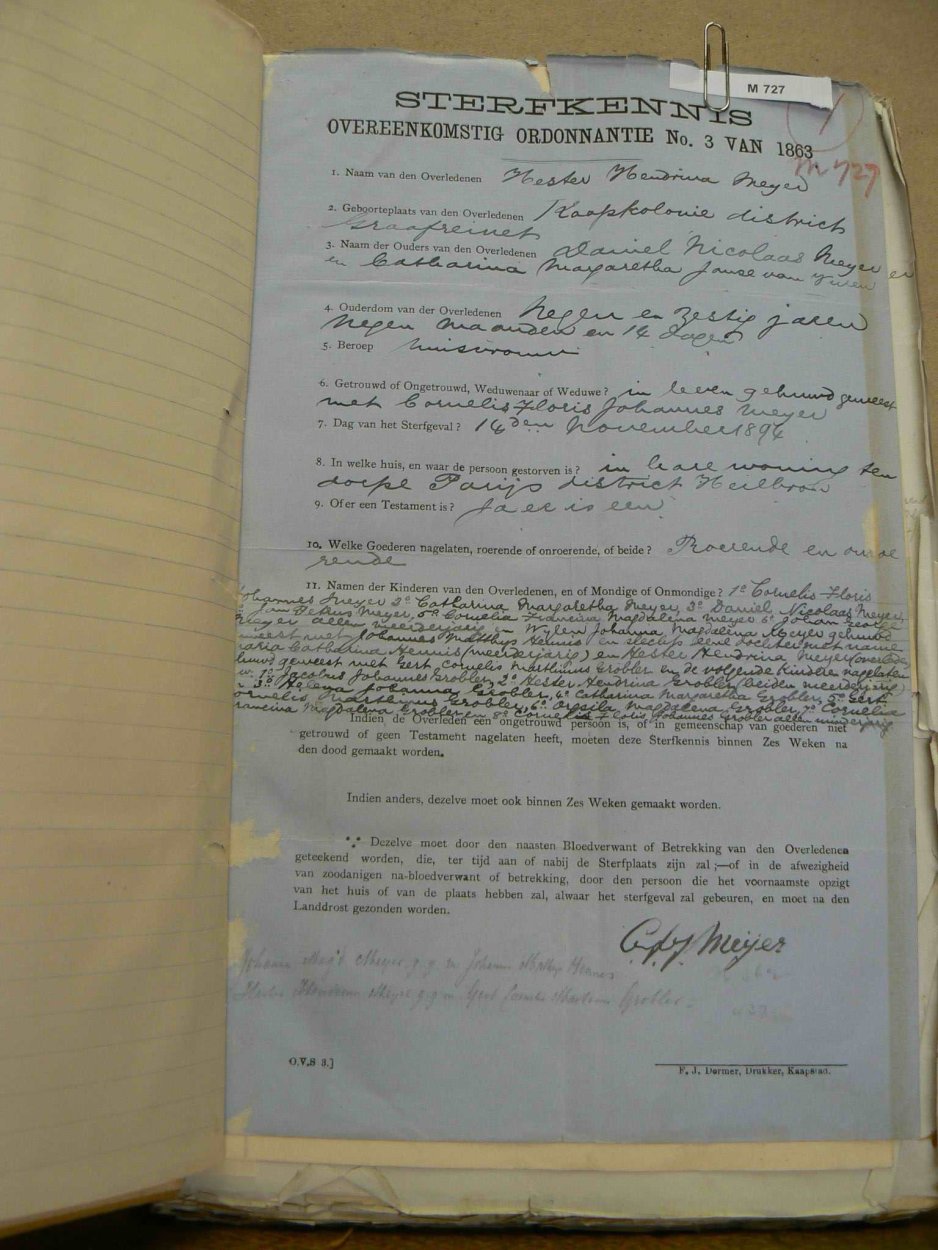 M 727
STERFKENNIS
OVEREENKOMSTIG ORDONNANTIE No. 3 VAN 1863
M 727
1. Naam van den Overledenen Hester Hendrina Meyer
2. Geboorteplaats van den Overledenen Kaapkolonie district
Graafreinet
3. Naam der Ouders van den Overledenen Daniel Nicolaas Meyer
en Catharina Margaretha Janse van
4. Ouderdom van der Overledenen Negen en Zestig jaren
Negen maanden en 14 dagen
5. Beroep huisvrouw
6. Getrouwd of Ongetrouwd, Weduwenaar of Weduwe? in leven gehuwd geweest
met Cornelis Floris Johannes Meyer
7. Dag van het Sterfgeval? 14den November 1894
8. In welke huis, en waar de persoon gestorven is? in hare woning ten
dorpe Parijs district Heilbron
9. Of er een Testament is? Ja er is een
10. Welke Goederen nagelaten, roerende of onroerende, of beide? Roerende en onroe
rende
11. Namen der Kinderen van den Overledenen, en of Mondige of Onmondige? 1e Cornelis Floris
Johannes Meyer 2e Catharina Margaretha Meyer, 3e Daniel Nicolaas Meyer
Jan Petrus Meyer, 5e Cornelia Francina Magdalena Meyer 6e Johan
Meyer allen meerderjarig en Wijlen Johanna Magdalena Meyer gehuwd
geweest met Johannes Matthys Hennis (en slechts eene dochter met name
Maria Catharina Hennis (meerderjarig) en Hester Hendrina Meyer (overleden
gehuwd geweest met Gert Cornelis Marthinus Grobler en de volgende kinderen nagelaten
1e Jacobus Johannes Grobler, 2e Hester Hendrina Grobler (beiden meerderjarig)
3e Helena Johanna Grobler, 4e Catharina Margaretha Grobler, 5e Gert
Cornelis Marthinus Grobler, 6e Magdalena Grobler, 7e Cornelia
Francina Magdalena Grobler en 8e Cornelis Floris Johannes Grobler allen minderjarig
Indien de Overleden een ongetrouwd persoon is, of in gemeenschap van goederen niet
getrouwd of geen Testament nagelaten heeft, moeten deze Sterfkennis binnen Zes Weken na
den dood gemaakt worden.
Indien anders, dezelve moet ook binnen Zes Weken gemaakt worden.
Dezelve moet door den naasten Bloedverwant of Betrekking van den Overledenen
geteekend worden, die, ter tijd aan of nabij de Sterfplaats zijn zal;—of in de afwezigheid
van zoodanigen na-bloedverwant of betrekking, door den persoon die het voornaamste opzigt
van het huis of van de plaats hebben zal, alwaar het sterfgeval zal gebeuren, en moet na den
Landdrost gezonden worden.
C F J Meijer
Johanna Magd Meyer g.g. m Johann Mathys Hennis
Hester Hendrina Meyer g.g. m Gert Cornelis Martinus Grobler
O.V.S 3.]
F. J. Dormer, Drukker, Kaapstad.